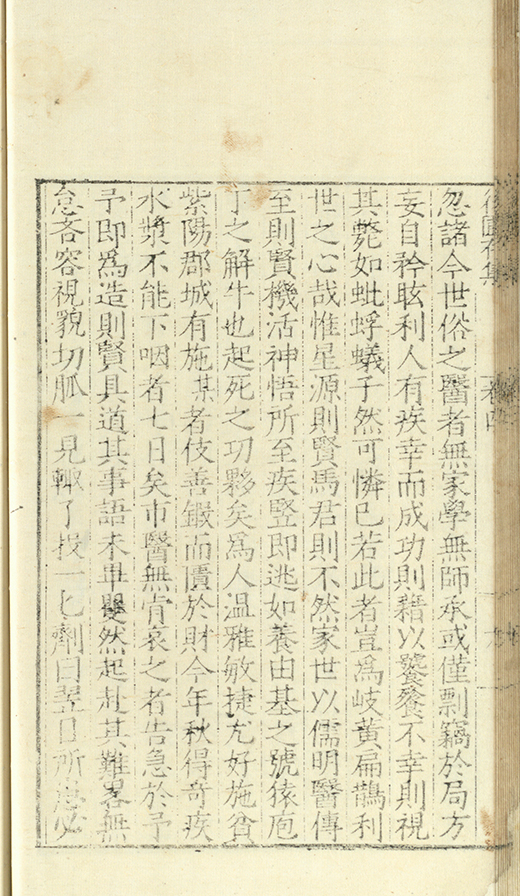 存集
卷四
九
忽諸今世俗之醫者無家學無師承或僅剽竊於局方
妄自矜眩利人有疾幸而成功則藉以饕餮不幸則視
其斃如蚍蜉蟻子然可憐已若此者豈為岐黃扁鵲利
世之心哉惟星源則賢馬君則不然家世以儒明醫傳
至則賢機活神悟所至疾豎即逃如養由基之號猿庖
丁之解牛也起死之功夥矣為人温雅敏捷尤好施貧
紫陽郡城有施某者伎善鍛而匱於財今年秋得奇疾
水漿不能下咽者七日矣市醫無肯哀之者告急於予
予即為造則賢具道其事語未畢矍然起赴其難畧無
怠吝容視貌切脈一見輙了投一匕劑曰翌日所患必